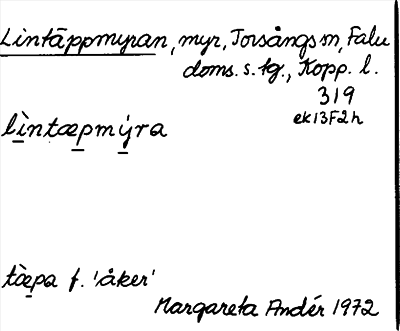 Lintäppmyran, myr, Torsångs sn, Falu
doms. s. tg., Kopp. l.
319
ek13F2h
lìntæpmýra
tæ̀pa f. 'åker'
Margareta Andér 1972